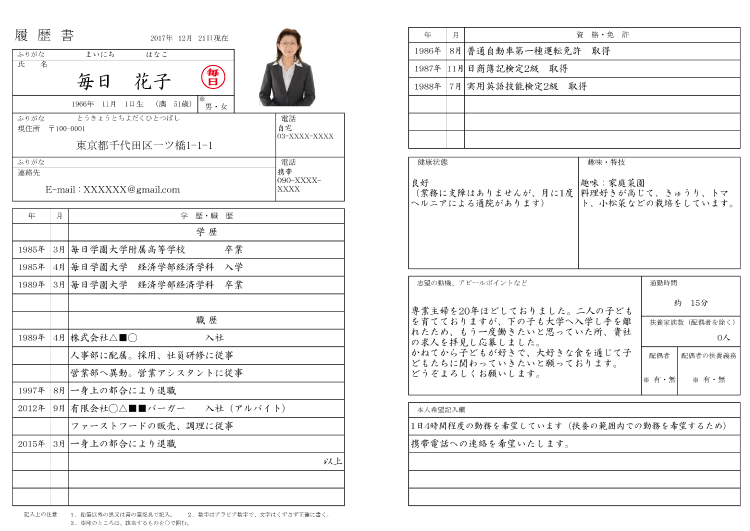 履 歴 書
2017年 12月 21日現在
ふりがな まいにち はなこ
氏 名
毎日 花子
毎日
1966年 11月 1日生 (満 51歳)
※
男・女
ふりがな とうきょうとちよだくひとつばし
現住所 〒100-0001
東京都千代田区一ツ橋1-1-1
電話
自宅
03-XXXX-XXXX
ふりがな
連絡先
E-mail:XXXXXX@gmail.com
電話
携帯
090-XXXX-
XXXX
年 月 学 歴・職 歴
学 歴
1985年 3月 毎日学園大学附属高等学校 卒業
1985年 4月 毎日学園大学 経済学部経済学科 入学
1989年 3月 毎日学園大学 経済学部経済学科 卒業
職 歴
1989年 4月 株式会社△■〇 入社
人事部に配属。採用、社員研修に従事
営業部へ異動。営業アシスタントに従事
1997年 8月 一身上の都合により退職
2012年 9月 有限会社〇△■■バーガー 入社(アルバイト)
ファーストフードの販売、調理に従事
2015年 3月 一身上の都合により退職
以上
記入上の注意 1.鉛筆以外の黒又は青の筆記具で記入。 2.数字はアラビア数字で、文字はくずさず正確に書く。
3.※印のところは、該当するものを〇で囲む。
年 月 資 格・免 許
1986年 8月 普通自動車第一種運転免許 取得
1987年 11月 日商簿記検定2級 取得
1988年 7月 実用英語技能検定2級 取得
健康状態
良好
(業務に支障はありませんが、月に1度
ヘルニアによる通院があります)
趣味・特技
趣味:家庭菜園
料理好きが高じて、きゅうり、トマ
ト、小松菜などの栽培をしています。
志望の動機、アピールポイントなど
専業主婦を20年ほどしておりました。二人の子ども
を育てておりますが、下の子も大学へ入学し手を離
れたため、もう一度働きたいと思っていた所、貴社
の求人を拝見し応募しました。
かねてから子どもが好きで、大好きな食を通じて子
どもたちに関わっていきたいと願っております。
どうぞよろしくお願いします。
通勤時間
約 15分
扶養家族数(配偶者を除く)
0人
配偶者 配偶者の扶養義務
※ 有・無 ※ 有・無
本人希望記入欄
1日4時間程度の勤務を希望しています(扶養の範囲内での勤務を希望するため)
携帯電話への連絡を希望いたします。